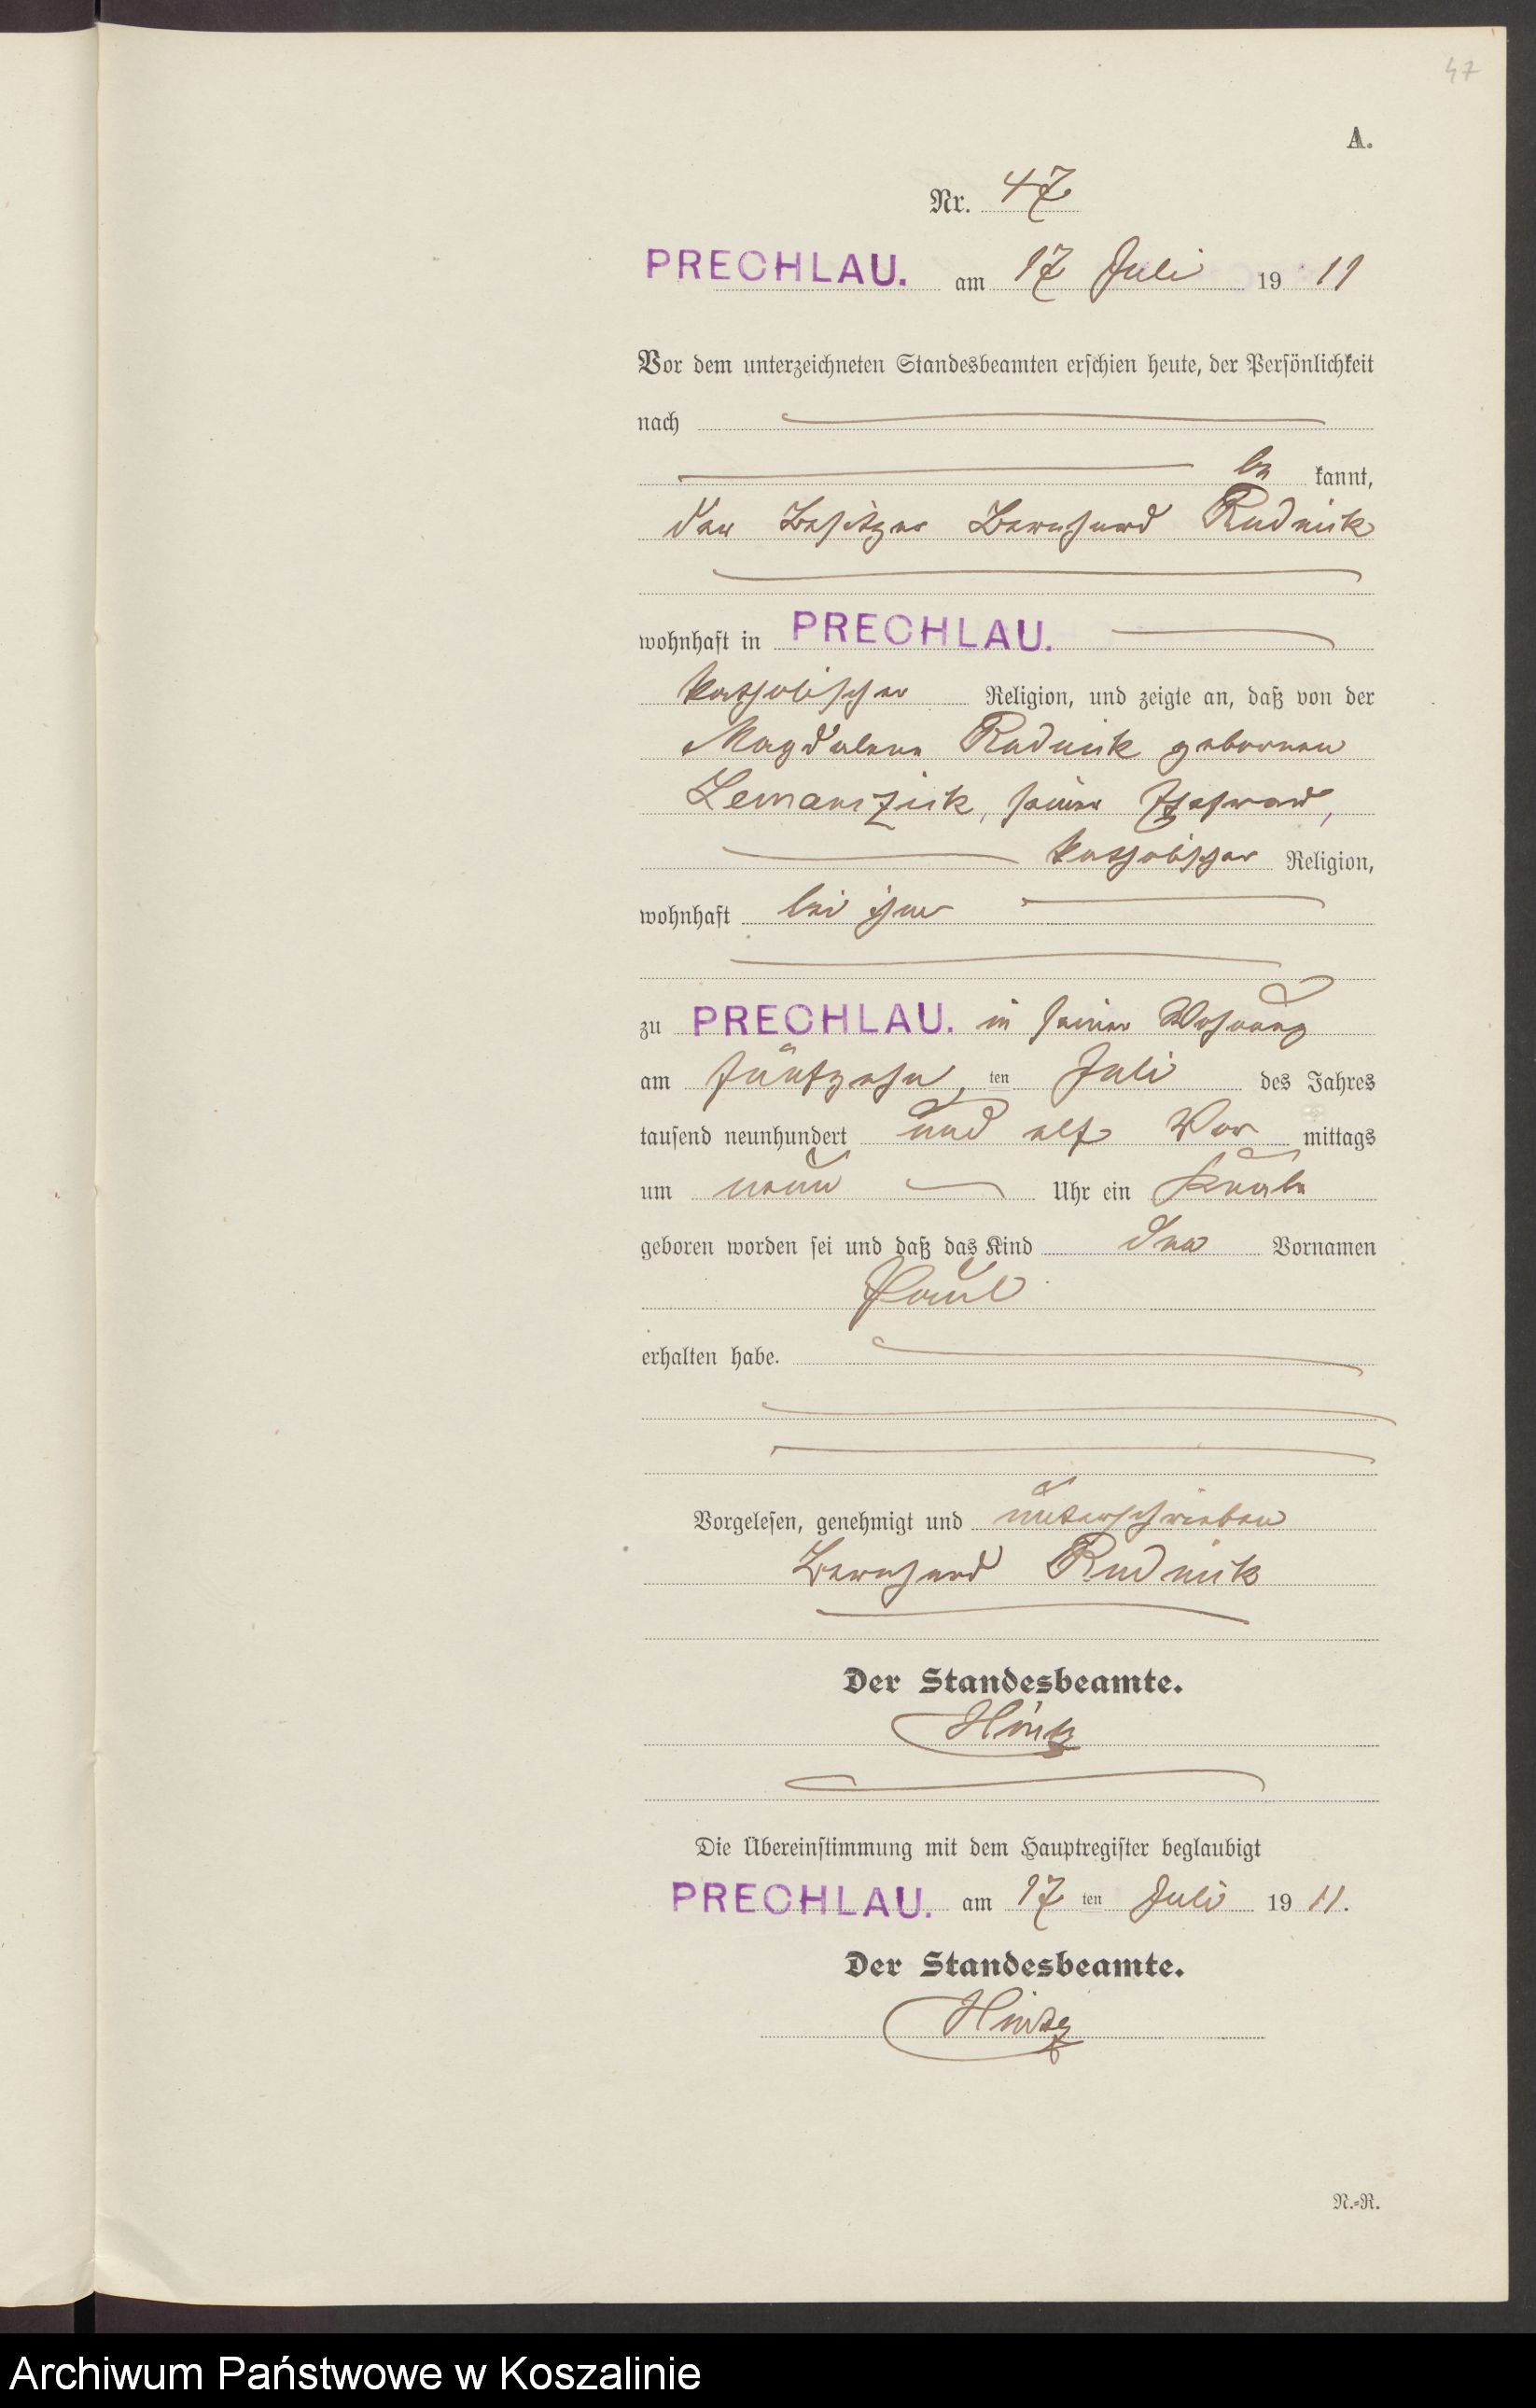 47
A.
Nr. 47
PRECHLAU. am 17 Juli 19 11
Vor dem unterzeichneten Standesbeamten erschien heute, der Persönlichkeit
nach
be kannt,
der Besitzer Bernhard Rudnik
wohnhaft in PRECHLAU.
katholischer Religion, und zeigte an, daß von der
Magdalena Rudnik geborenen
Lemanczik, seiner Ehefrau,
katholischer Religion,
wohnhaft bei ihm
zu PRECHLAU. in seiner Wohnung
am fünfzehn ten Juli des Jahres
tausend neunhundert und elf Vor mittags
um neun Uhr ein Knabe
geboren worden sei und daß das Kind den Vornamen
Paul
erhalten habe.
Vorgelesen, genehmigt und unterschrieben
Bernhard Rudnik
Der Standesbeamte.
Hintz
Die Übereinstimmung mit dem Hauptregister beglaubigt
PRECHLAU. am 17 ten Juli 19 11.
Der Standesbeamte.
Hintz
N.=R.
Archiwum Państwowe w Koszalinie